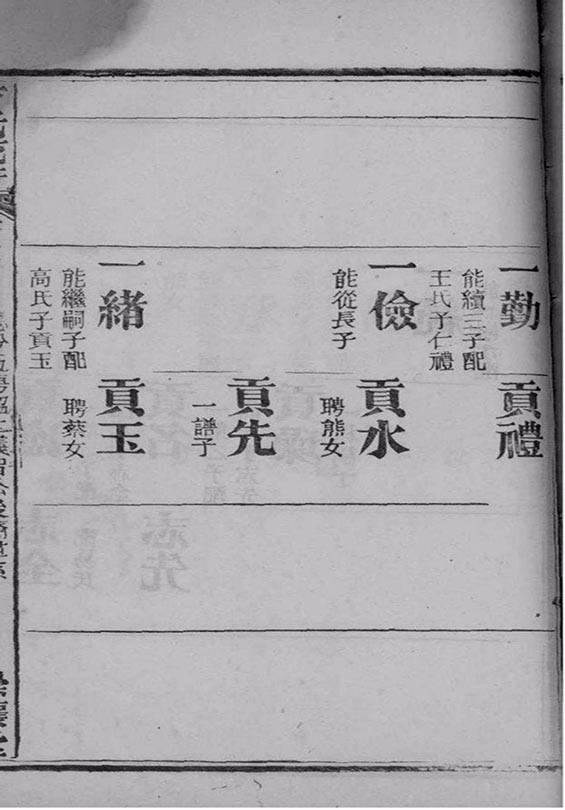 一勤
能續三子配
王氏子仁禮
貢禮
一儉
能從長子
貢水
聘熊女
貢先
一譜子
一緒
能繼嗣子配
高氏子貢玉
貢玉
聘蔡女